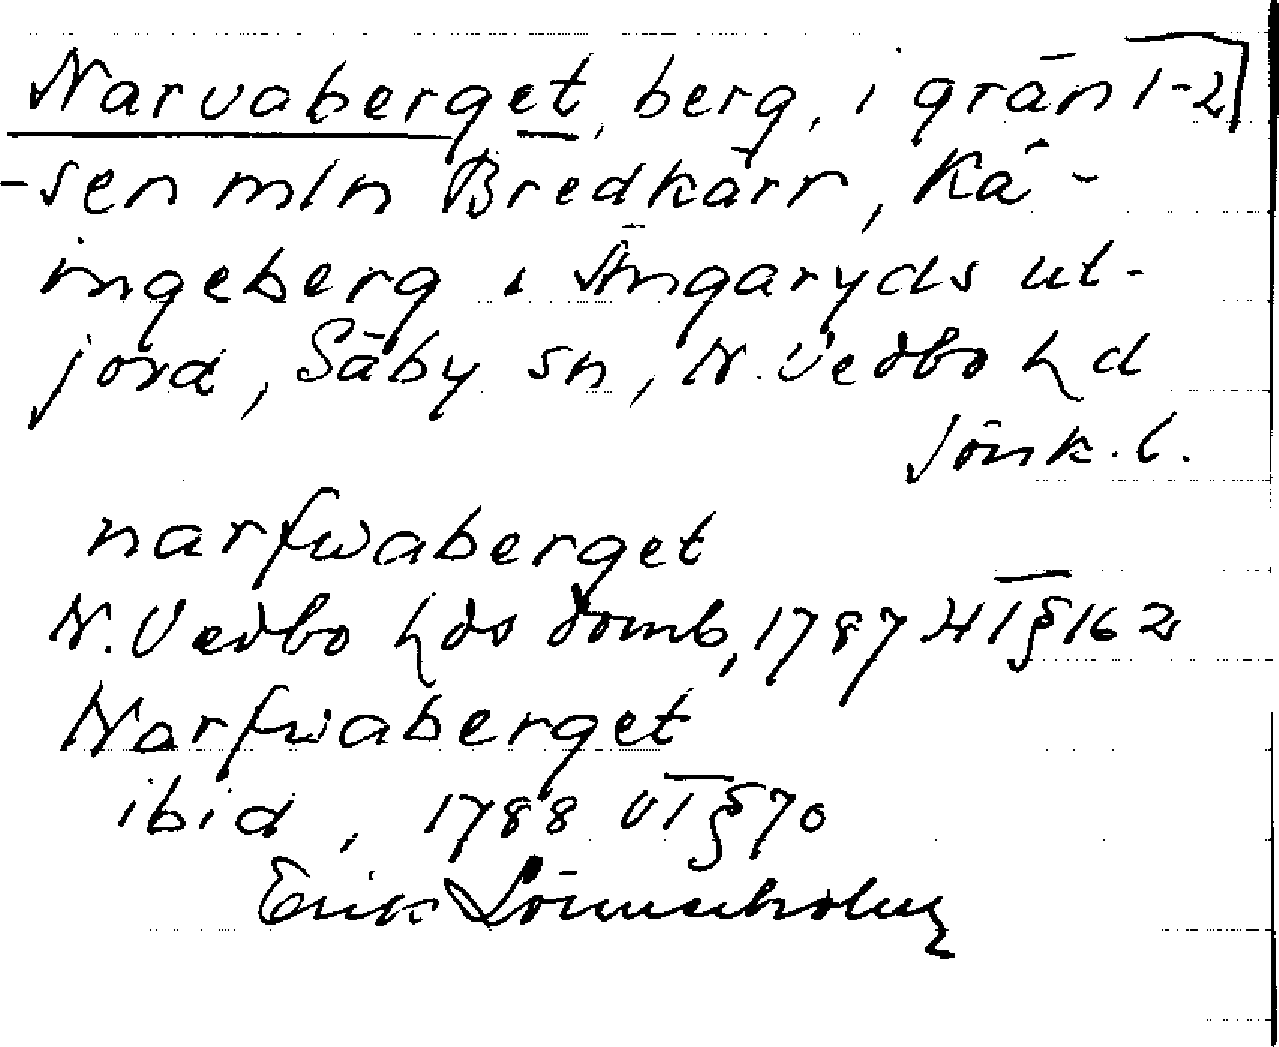 Narvaberget, berg, i grän 1-2
-sen mln Bredkärr, Kä-
ingeberg o Ängaryds ut-
jord, Säby sn, N. Vedbo hd
Jönk. l.
narfwaberget
N. Vedbo hds domb, 1787 HT § 162
Narfwaberget
ibid, 1788 VT § 70
Erik Lönnerholm